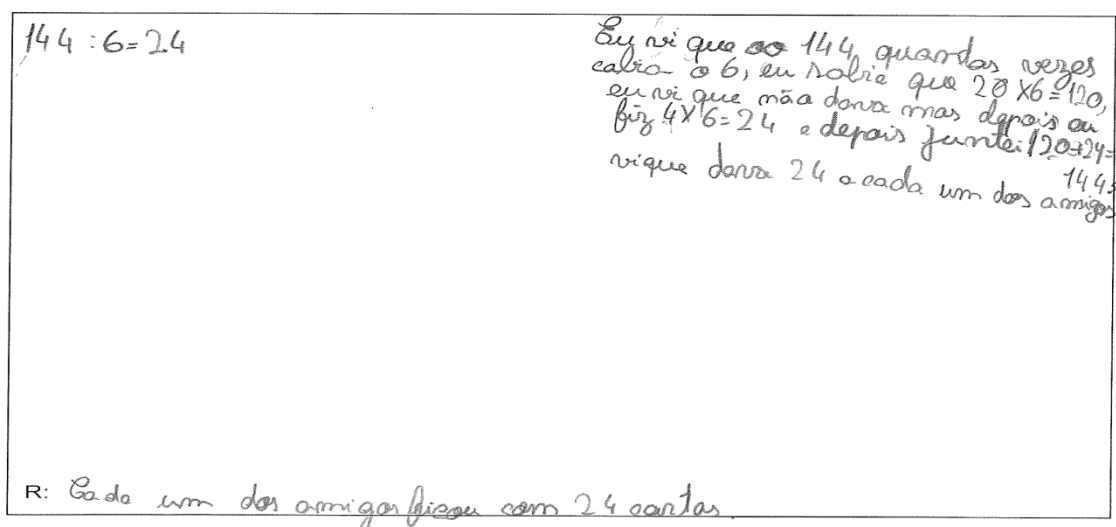 144 : 6 = 24
Eu vi que ao 144, quandas vezes
cabia o 6, eu sabia que 20 X6=120,
eu vi que não dava mas depois eu
fiz 4X6=24 e depois juntei 120+24=
144,
vi que dava 24 a cada um dos amigos
R: Cada um dos amigos ficou com 24 cartas.